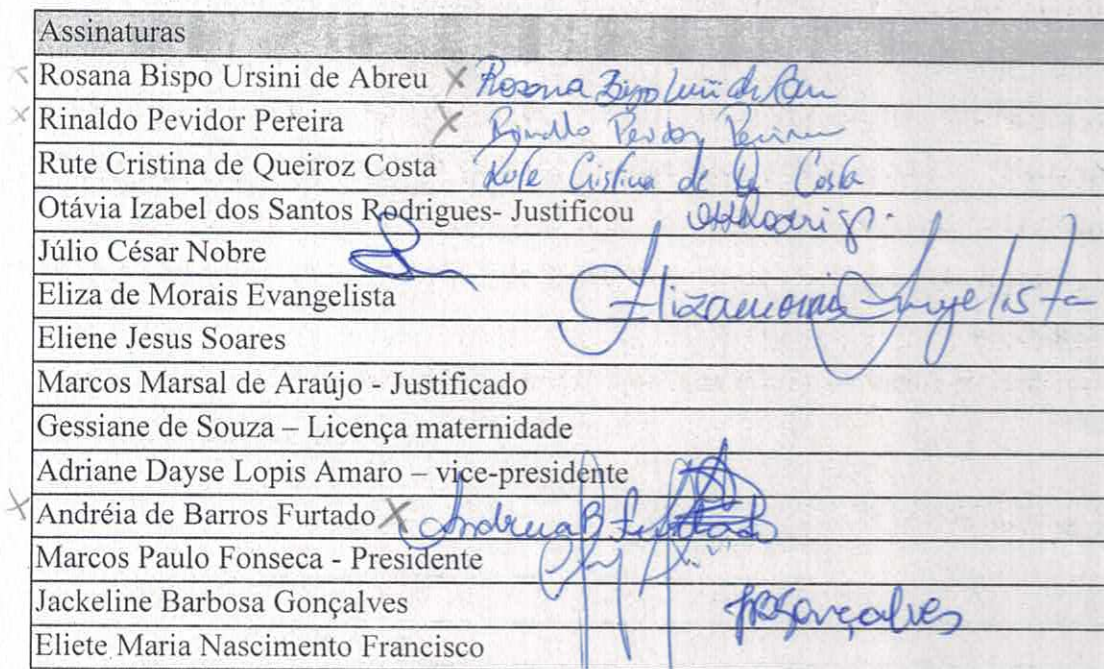 Assinaturas
Rosana Bispo Ursini de Abreu X Rosana Bispo
Rinaldo Pevidor Pereira X Rinaldo Pevidor Pereira
Rute Cristina de Queiroz Costa Rute Cristina de Costa
Otávia Izabel dos Santos Rodrigues- Justificou
Júlio César Nobre
Eliza de Morais Evangelista Eliza Morais Evangelista
Eliene Jesus Soares
Marcos Marsal de Araújo - Justificado
Gessiane de Souza – Licença maternidade
Adriane Dayse Lopis Amaro – vice-presidente
Andréia de Barros Furtado X Andreia B Furtado
Marcos Paulo Fonseca - Presidente
Jackeline Barbosa Gonçalves JBGonçalves
Eliete Maria Nascimento Francisco